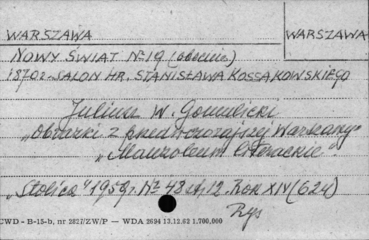 WARSZAWA
WARSZAWA
NOWY ŚWIAT Nº 19 (obecnie)
1870 r - SALON HR. STANISŁAWA KOSSAKOWSKIEGO
Juliusz W. Gomulicki
"Obrazki z przedwczorajszej Warszawy"
"Mauzoleum literackie".
"Stolica" 1959 r. Nº 48 str. 12. Rok XIV (624)
Rys
CWD - B-15-b, nr 2827/ZW/P — WDA 2694 13.12.62 1,700,000